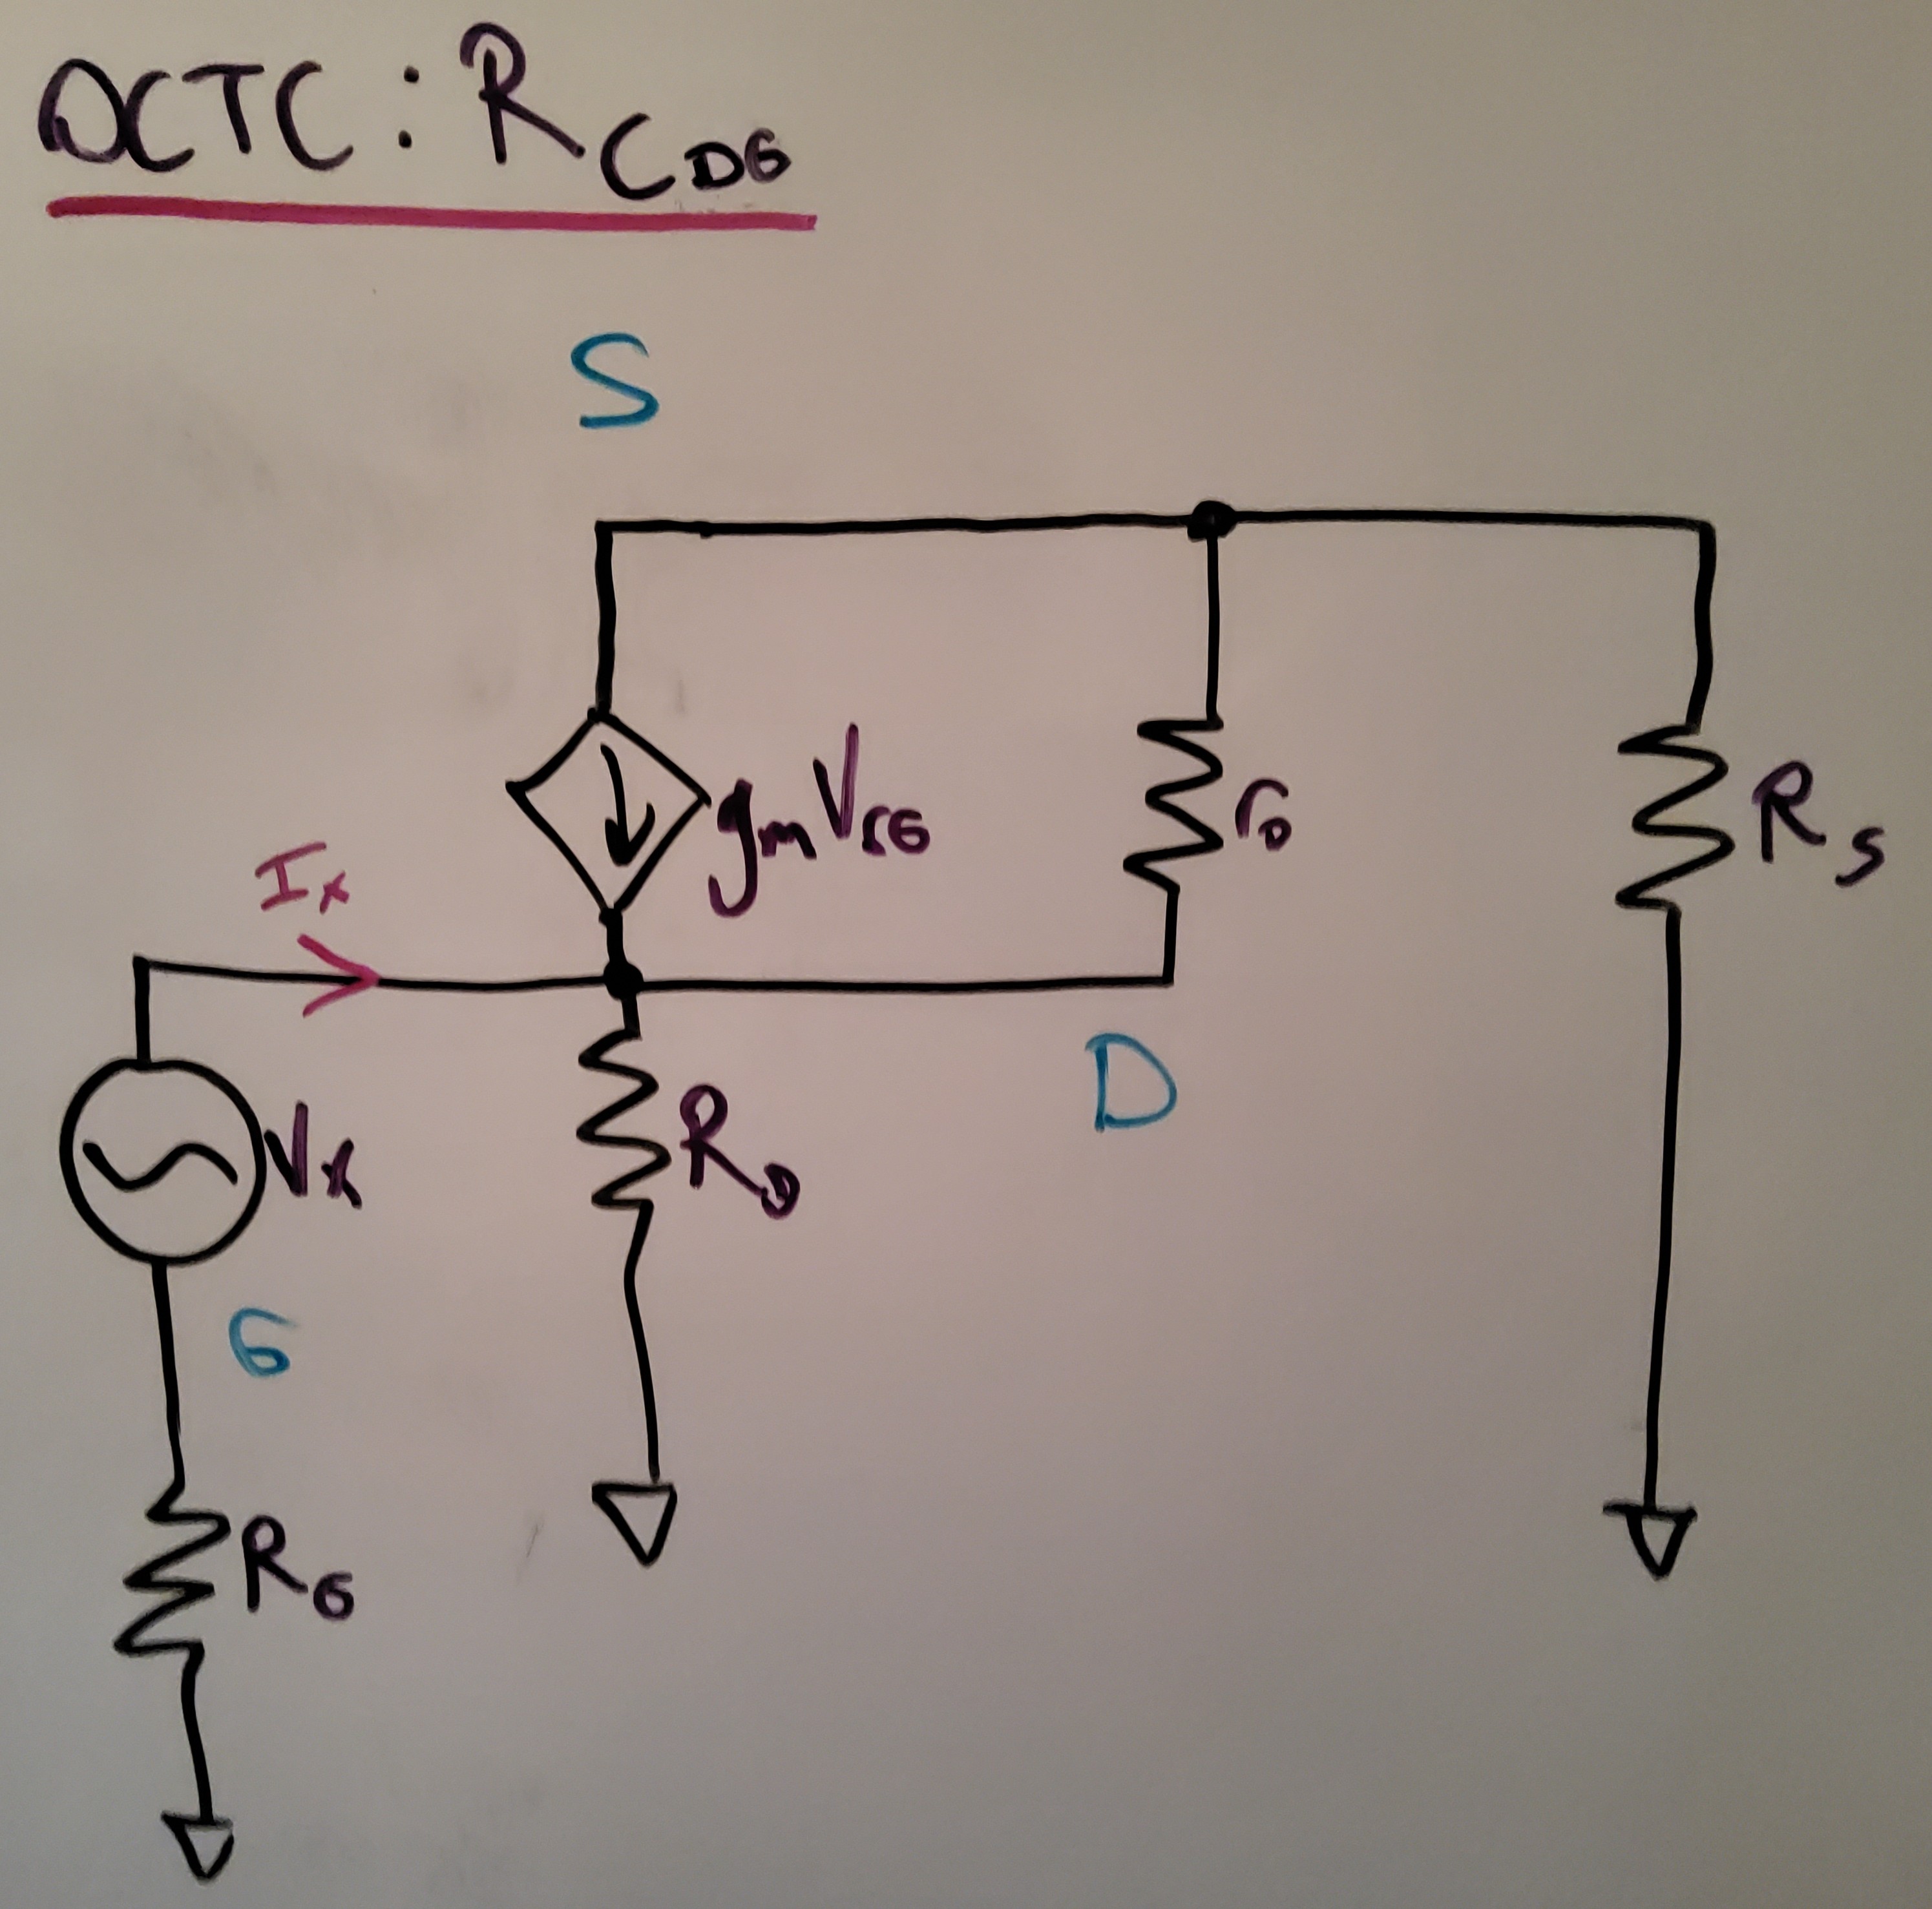 OCTC: RCDG
S
gmVSG
ro
RS
Ix
D
Vx
RD
G
RG